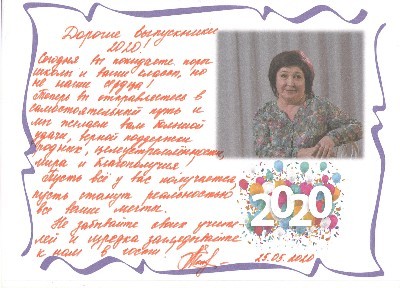 Дорогие выпускники
2020!
Сегодня вы покидаете порог
школы и ваши классы, но
не наши сердца!
Теперь вы отправляетесь в
самостоятельный путь и
мы желаем вам большой
удачи, верной поддержки
родных, целеустремлённости,
мира и благополучия!
Пусть всё у вас получается,
пусть станут реальностью
все ваши мечты.
Не забывайте своих учите-
лей и изредка заглядывайте
к нам в гости!
2020
25.05.2020